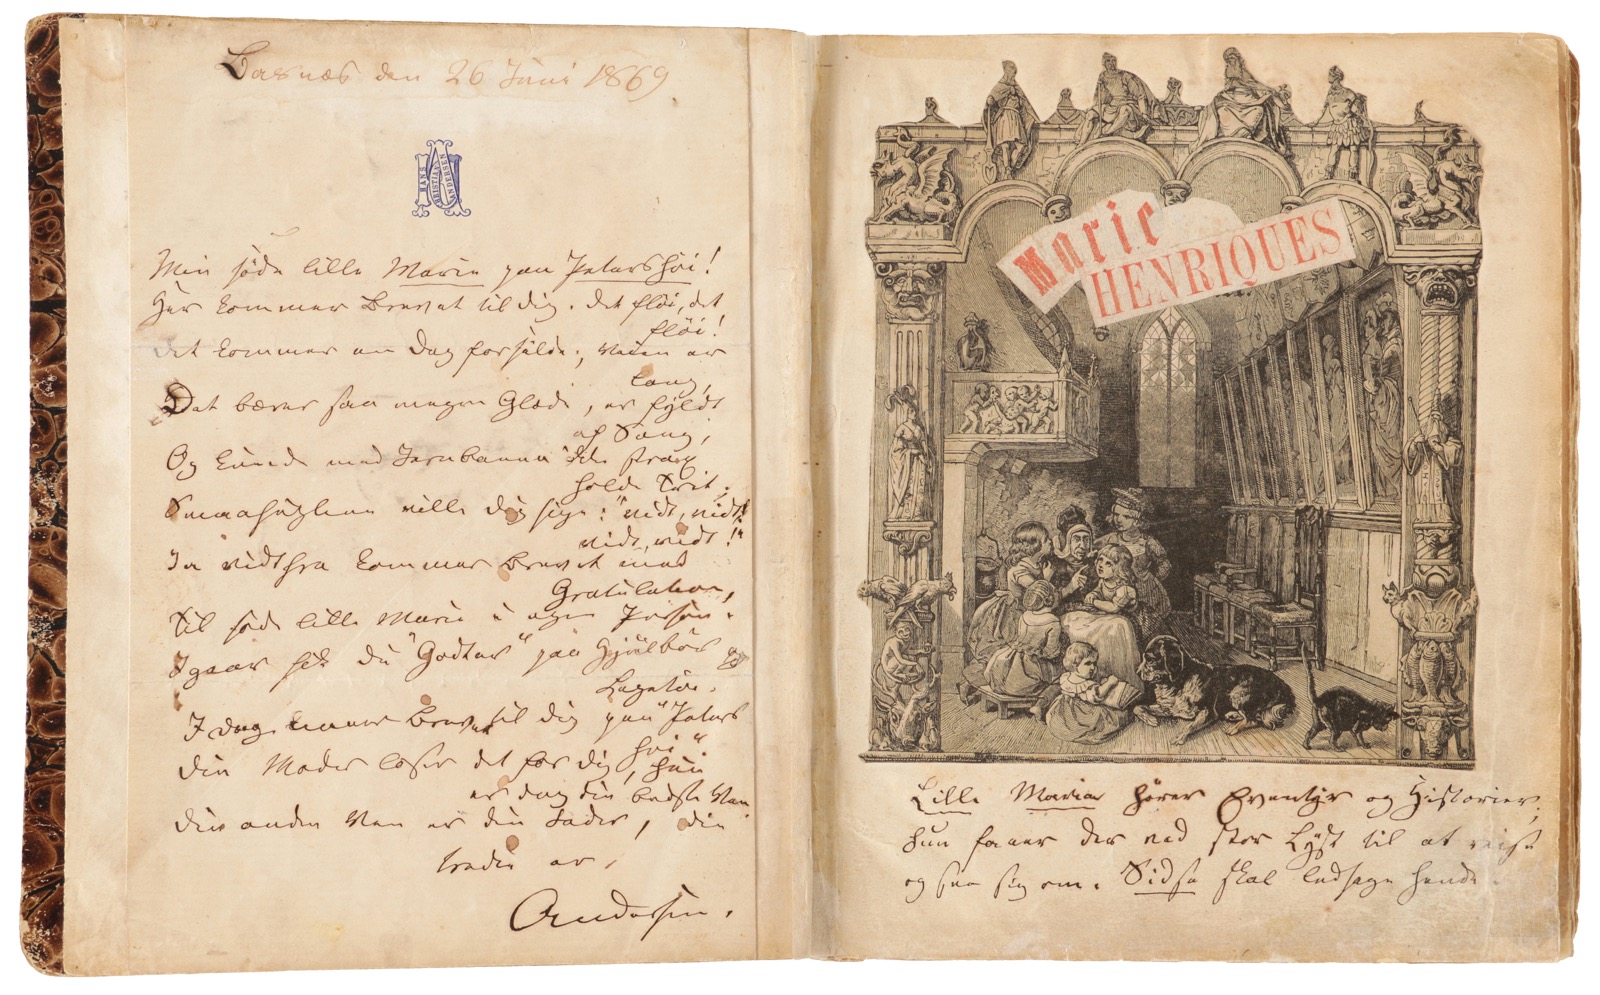 Basnæs den 26 Juni 1869.
HANS
CHRISTIAN
ANDERSEN
Min søde lille Marie paa Petershøi!
Her kommer Brevet til dig. det fløi, det
fløi!
det kommer en Dag forsilde, Veien er
lang,
Det bærer saa megen Glæde, er fyldt
af Sang,
Og kunde med Jernbanen ikke strax
holde Trit;
Smaafuglene ville dig sige: "vidt, vidt!
vidt, vidt!"
Ja vidtfra kommer Brevet med
Gratulation,
Til søde lille Marie i egen Person.
Igaar fik du "Godter" paa
I dag kommer Brevet til dig paa "Peters
høi".
din Moder læser det for dig, hun
er dog din bedste Ven
din anden Ven er din Fader, din
tredie er,
Andersen.
Marie
HENRIQUES
Lille Marie hører Eventyr og Historier;
hun faaer der ved stor Lyst til at reise
og see sig om. Sidse skal ledsage hende.